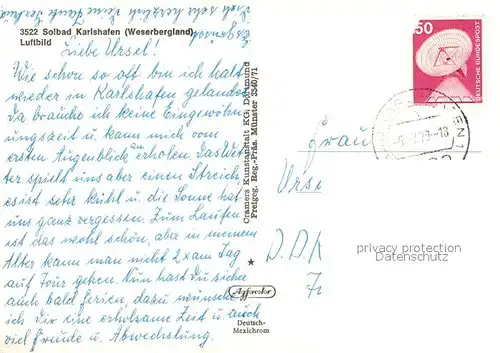 3522 Solbad Karlshafen (Weserbergland)
Luftbild
Liebe Ursel!
Wie schon so oft bin ich halt
wieder in Karlshafen gelandet.
Da brauche ich keine Eingewöhn
ungszeit u. kann mich vom
ersten Augenblick an erholen. Das Wet
ter spielt uns aber einen Streich,
es ist sehr kühl u. die Sonne hat
uns ganz vergessen. Zum Laufen
ist das wohl schön, aber in meinem
Alter kann man nicht 2x am Tag
auf Tour gehen. Nun hast Du sicher
auch bald Ferien, dazu wünsche
ich Dir eine erholsame Zeit u. auch
viel Freude u. Abwechslung.
Cramers Kunstanstalt KG, Dortmund
Freigeg. Reg.-Präs. Münster 3540/71
Agfacolor
Deutsch-
Mexichrom
50
DEUTSCHE BUNDESPOST
Frau
Urse
D.D.R
privacy protection
Datenschutz